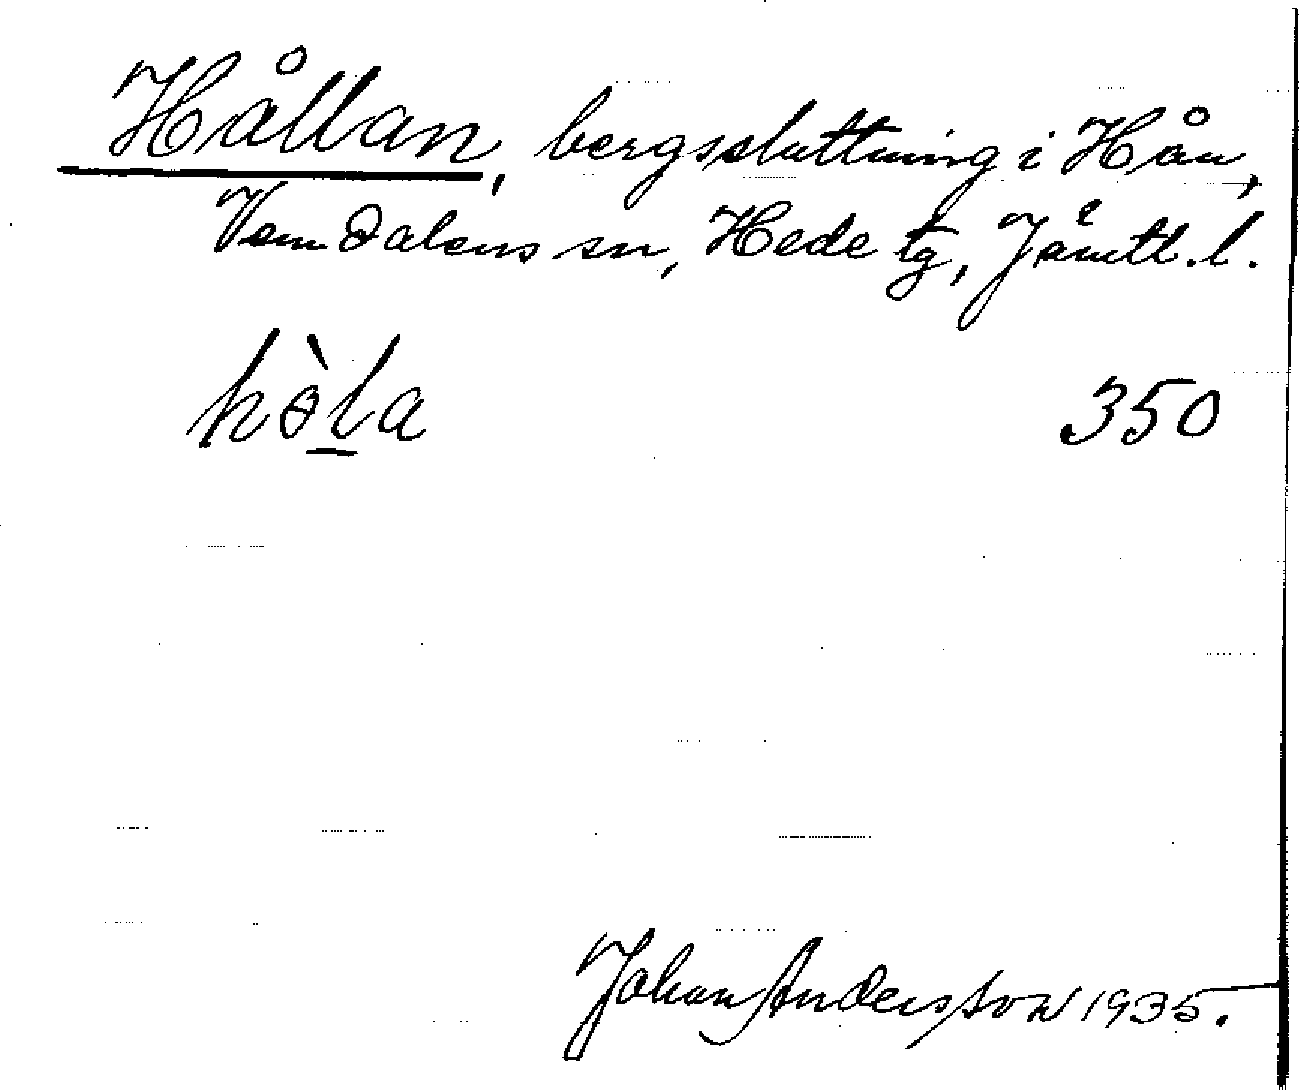 Hållan, bergssluttning i Hån,
Vemdalens sn, Hede tg, Jämtl. l.
hɵ̀l̲a 350
Johan Andersson 1935.